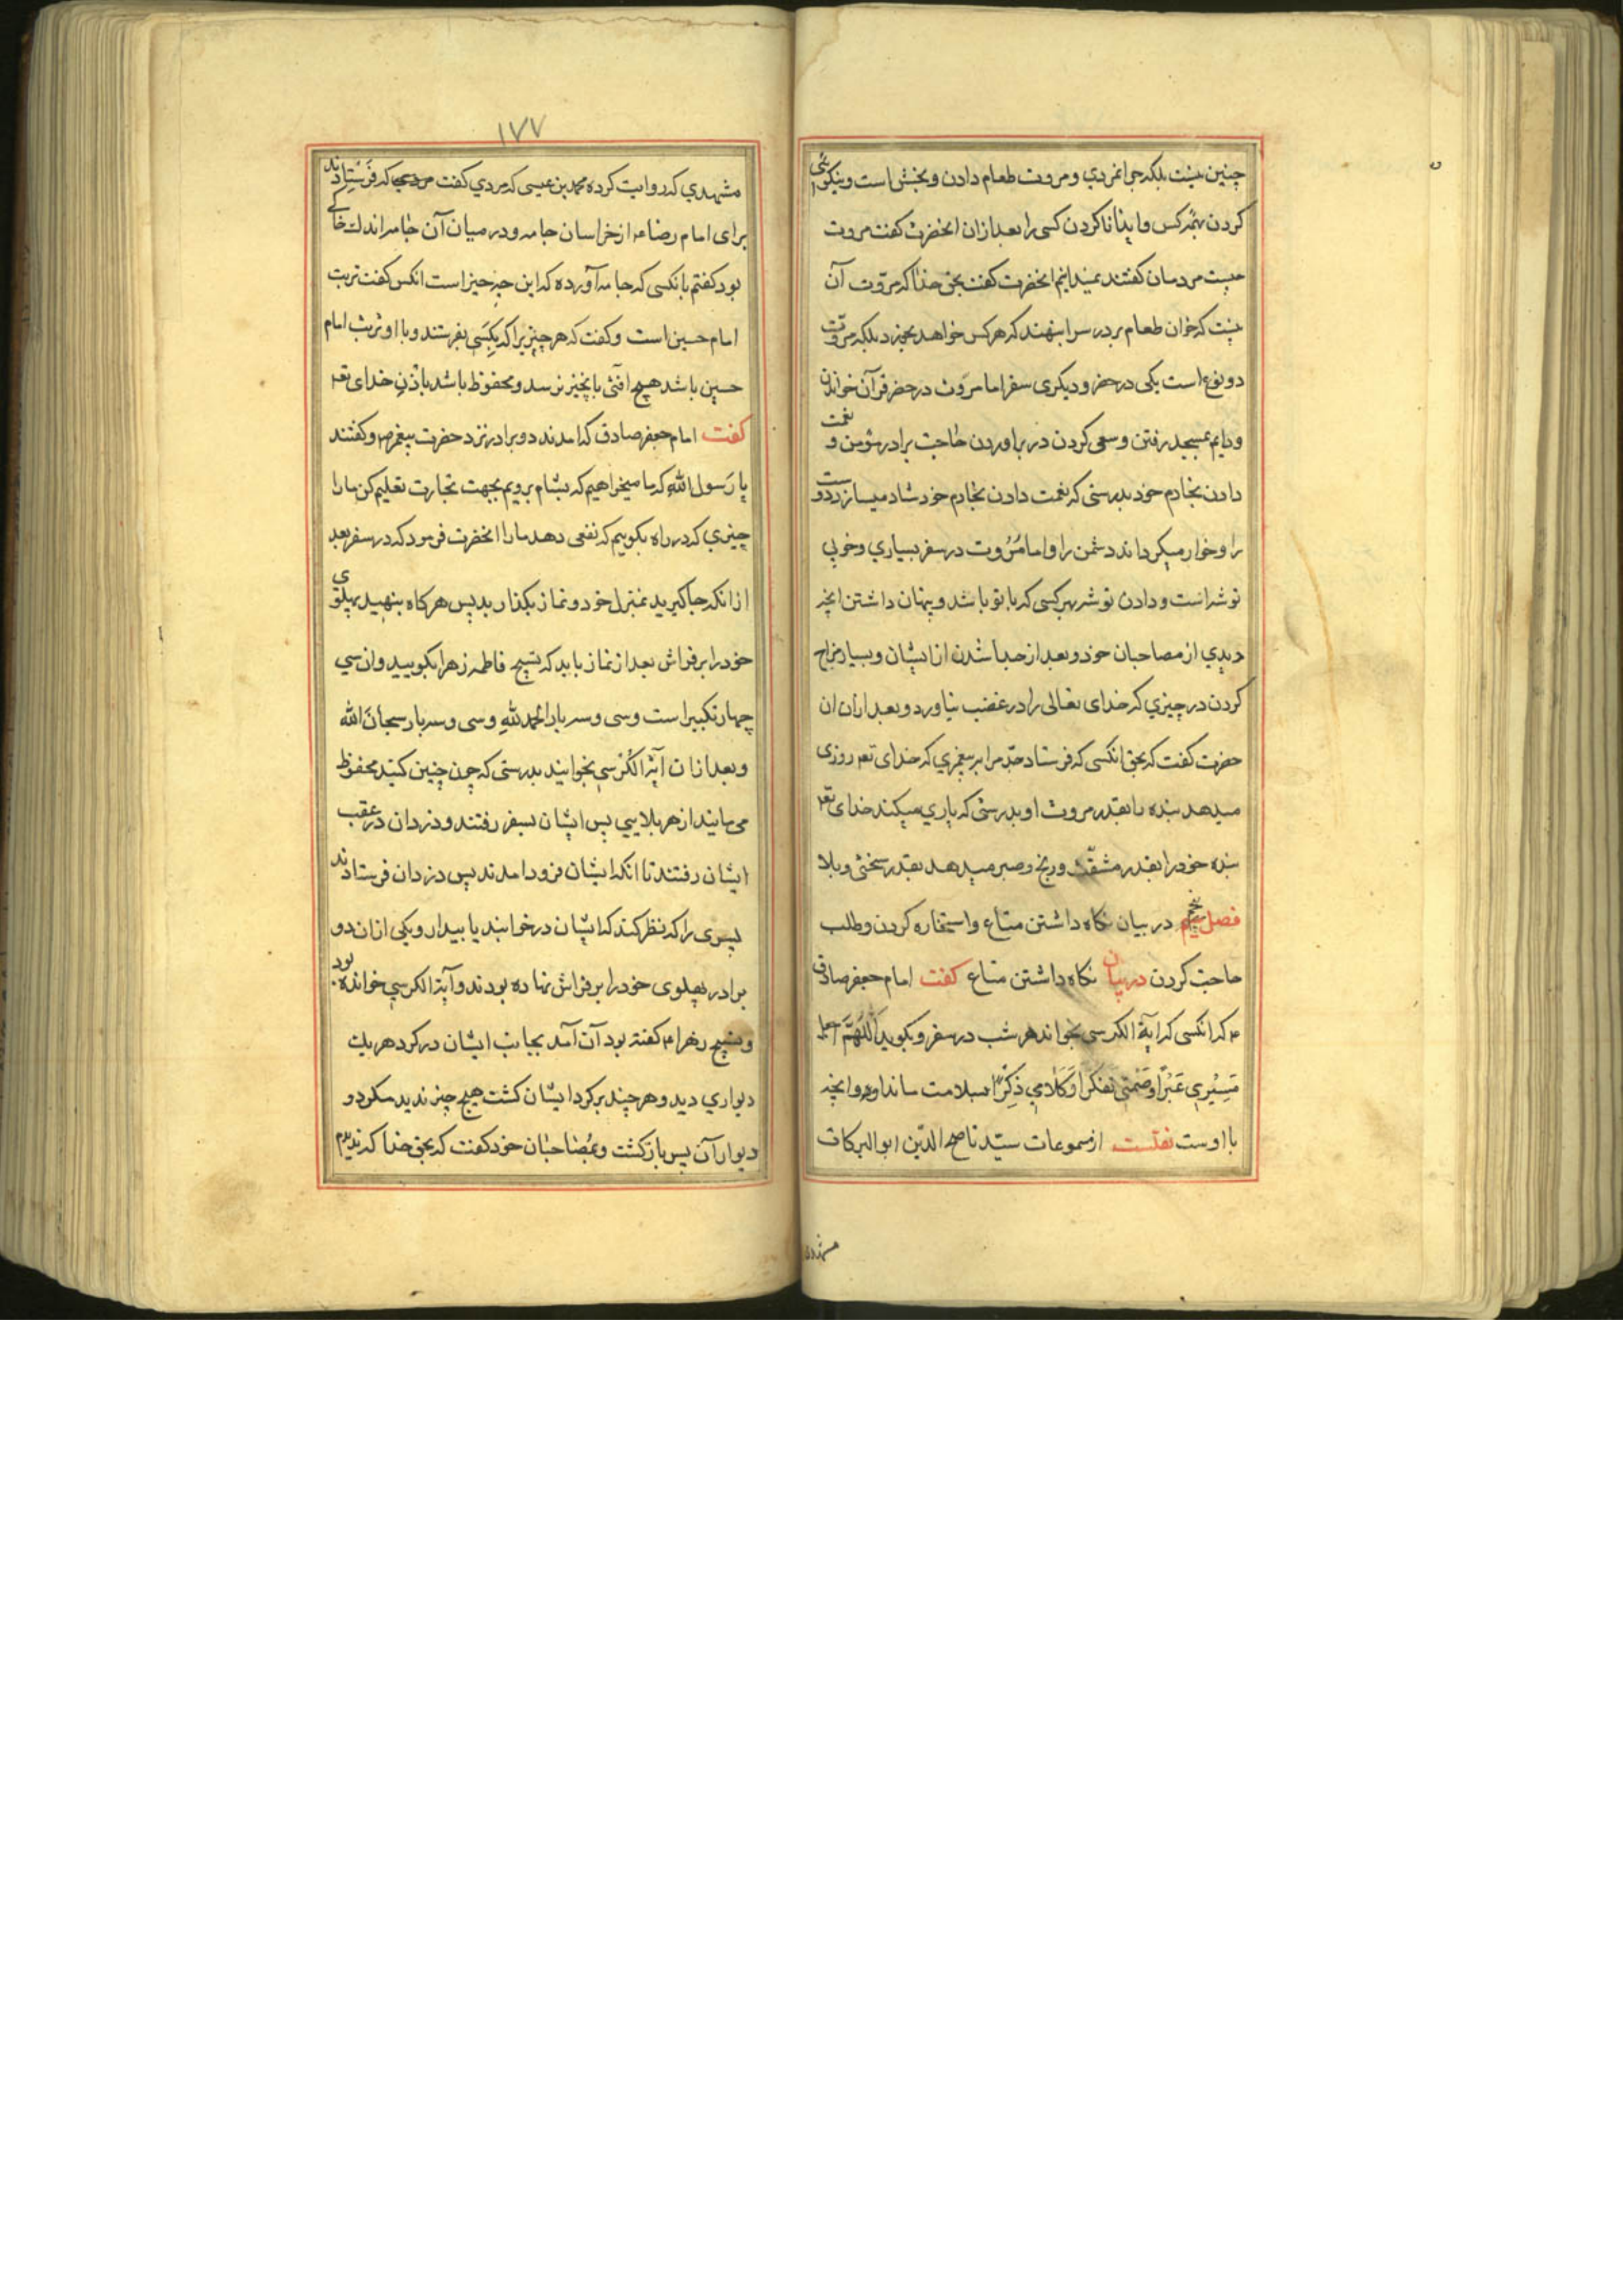 چنین نیست بلکه جوانمردي و مروت طعام دادن و بخشش است و نیکوئی
کردن بهمه کس و ایذا ناکردن کسی را بعد ازان انحضرت کفت مروت
چیست مردمان کفتند نمیدانیم انحضرت کفت بحق خدا که مروّت آن
نیست که خوان طعام بر در سرا بنهند که هر کس خواهد بخورد بلکه مروّت
دو نوع است یکی در حضر و دیکری سفر اما مروّت در حضر قرآن خواندن
و دایم بمسجد رفتن و سعی کردن در براوردن حاجت برادر مؤمن و نعمت
دادن بخادم خود بدرستی که نعمت دادن بخادم خود شاد میسازد دوست
را و خوار میکرداند دشمن را و اما مُرُوت در سفر بسیاري و خوبی
توشه است و دادن توشه بهر کسی که با تو باشد و پنهان داشتن انچه
دیدي از مصاحبان خود و بعد از جدا شدن از ایشان و بسیار مزاح
کردن در چیزي که خدای تعالی را در غضب نیاورد و بعد ازان ان
حضرت کفت که بحق انکسی که فرستاد جدّ مرا بر پیغمبري که خدای تعه روزی
میدهد بنده را بقدر مروت او بدرستی که یاري میکند خدای تعه
بنده خود را بقدر مشقّت و رنج و صبر میدهد بقدر سختی و بلا
فصل پنجم در بیان نکاه داشتن متاع و استخاره کردن و طلب
حاجت کردن در بیان نکاه داشتن متاع کفت امام جعفر صادق
ع که انکسی که ایة الکرسی بخواند هر شب در سفر و بکوید اَللّهُمَّ اجعل
مَسِیْرِي عَبْرًا وَصَمْتِي تَفَکُّرًا وَکَلامِي ذِکْرًا بسلامت ماند او و انچه
با اوست نقلست از مسموعات سیّد ناصح الدّین ابوالبرکات
۱۷۷
مشهدي که روایت کرده محمد بن عیسی که مردي کفت مردي که فرستادند
برای امام رضا ع از خراسان جامه و در میان آن جامه اندك خاکے
بود کفتم بانکسی که جامه آورده که این چه چیز است انکس کفت تربت
امام حسین است و کفت که هر چیزیرا که بکسی بفرستند و با او تربت امام
حسین باشد هیچ افتی بانچیز نرسد و محفوظ باشد باذن خدای تعه
کفت امام جعفر صادق که امدند دو برادر نزد حضرت پیغمبر ص و کفتند
یا رَسول اللّه که ما میخواهیم که بشام برویم بجهت تجارت تعلیم کن مارا
چیزي که در راه بکوییم که نفعی دهد مارا انحضرت فرمود که در سفر بعد
از انکه جا کیرید بمنزل خود و نماز بکذارید پس هرکاه بنهید پهلوی
خود را بر فراش بعد از نماز باید که تسبیح فاطمه زهرا بکویید و ان سي
چهار تکبیر است و سی و سه بار الحمد للّهِ و سی و سه بار سبحانَ اللّه
و بعد ازان آیة الکُرْسی بخوانید بدرستی که چون چنین کنید محفوظ
می مانید از هر بلایي پس ایشان بسفر رفتند و دزدان در عقب
ایشان رفتند تا انکه ایشان فرود امدند پس دزدان فرستادند
پسری را که نظر کند که ایشان در خوابند یا بیدار و یکی ازان دو
برادر پهلوی خود را بر فراش نهاده بودند و آیة الکرسی خوانده بود
و تسبیح زهرا ع کفته بود آن آمد بجانب ایشان در کرد هر یك
دیواري دید و هر چند بر کرد ایشان کشت هیچ چیز ندید مکر دو
دیوار آن پس باز کشت و بمُصاحبان خود کفت که بحق خدا که ندیدم
مشهدي